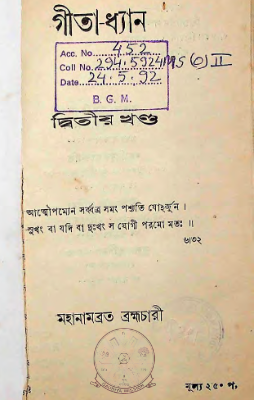 গীতা-ধ্যান
Acc. No. 452
Coll No. 294.5924
Date 24.5.92
B. G. M.
দ্বিতীয় খণ্ড
আত্মৌপম্যেন সর্ব্বত্র সমং পশ্যতি যোঽর্জুন ।
সুখং বা যদি বা দুঃখং স যোগী পরমো মতঃ ॥
৬/৩২
মহানামব্রত ব্রহ্মচারী
মূল্য ২৫০ প.